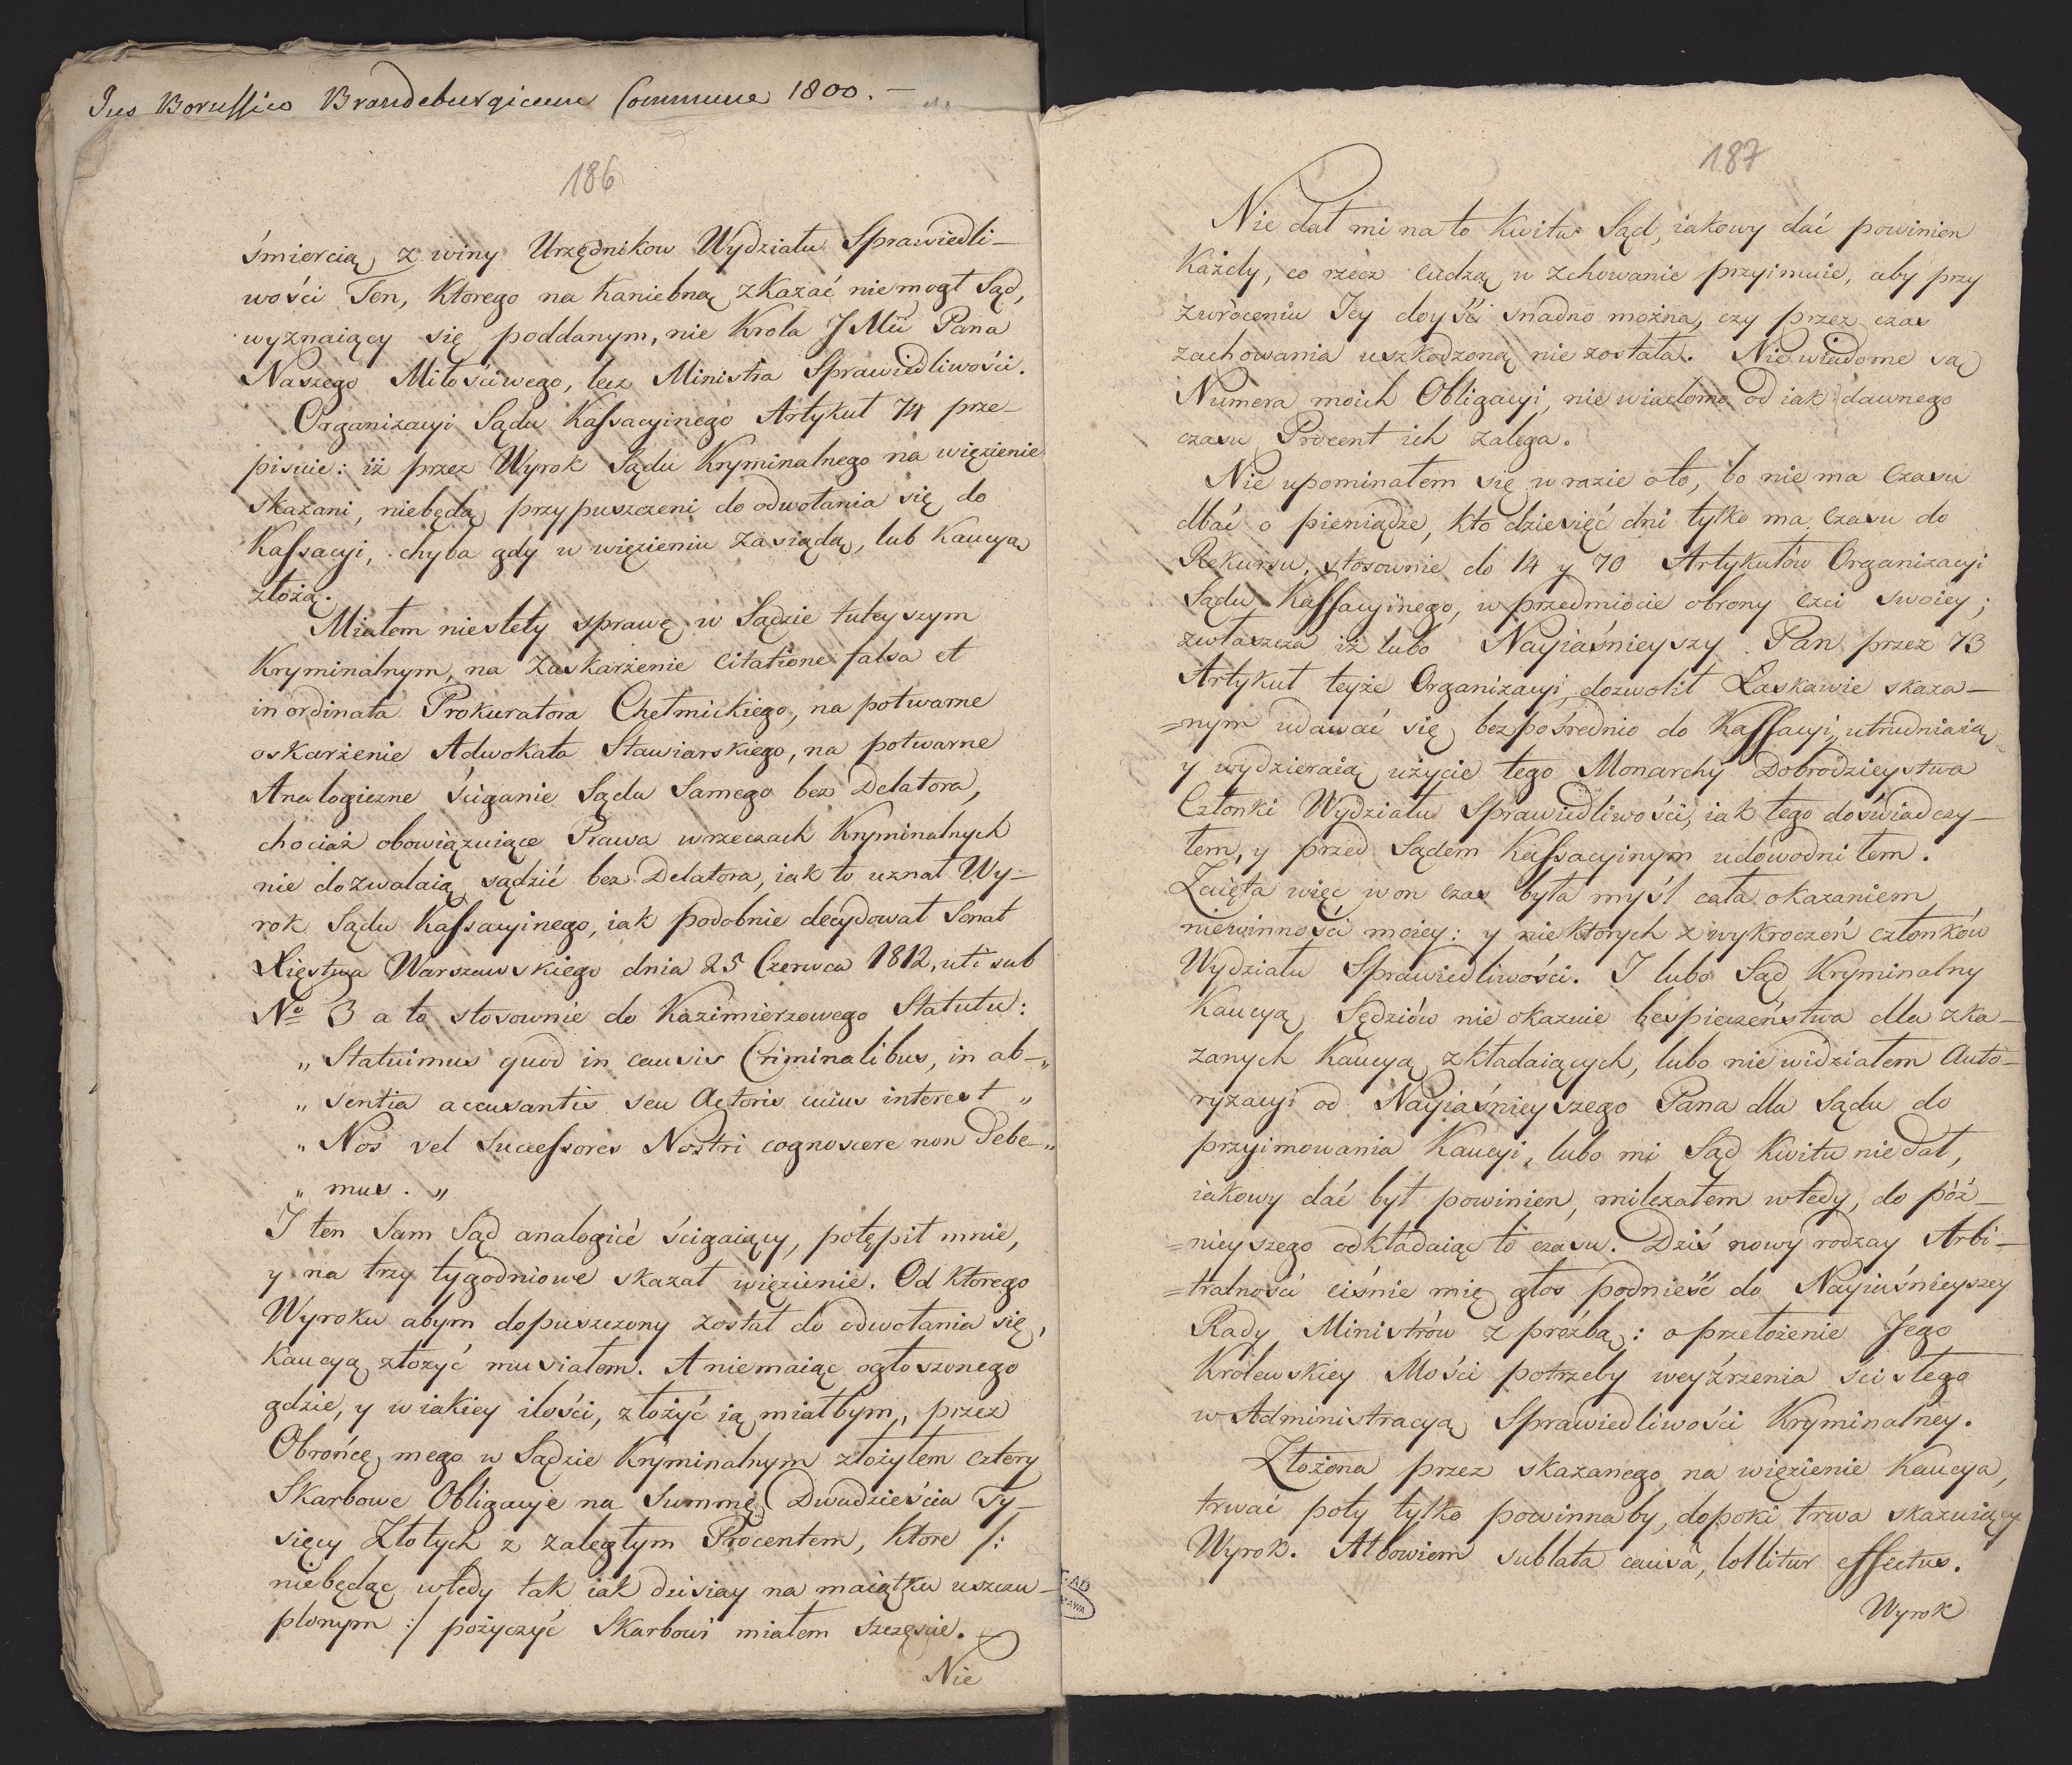 Jus Borussico Brandeburgicum Commune 1800. –
186
śmiercią z winy Urzędnikow Wydziału Sprawiedli–
wości Ten, ktorego na haniebną zkazać niemogł Sąd,
wyznaiący się poddanym, nie Krola JMci Pana
Naszego Miłościwego, lecz Ministra Sprawiedliwości.
Organizacyi Sądu Kassacyinego Artykuł 74 prze–
pisuie: iż przez Wyrok Sądu Kryminalnego na więzienie
skazani, niebędą przypuszczeni do odwołania się do
Kassacyi, chyba gdy w więzieniu zasiądą, lub Kaucyą
złożą.
Miałem niestety sprawę w Sądzie tuteyszym
Kryminalnym, na Zaskarżenie Citatione falsa et
inordinata Prokuratora Chełmickiego, na potwarne
oskarżenie Adwokata Stawiarskiego, na potwarne
Analogiczne Ściganie Sądu Samego bez Delatora,
chociaż obowiązuiące Prawa w rzeczach Kryminalnych
nie dozwalaią sądzić bez Delatora, iak to uznał Wy–
rok Sądu Kassacyinego, iak podobnie decydował Senat
Xięstwa Warszawskiego dnia 25 Czerwca 1812, uti sub
No 3 a to stosownie do Kazimierzowego Statutu:
„ Statuimus quod in causis Criminalibus, in ab–„
„ sentia accusantis seu Actoris cuius interest „
„ Nos vel Successores Nostri cognoscere non debe–„
„ mus. „
I ten Sam Sąd analogicé ścigaiący, potępił mnie,
y na trzy tygodniowe skazał więzienie. Od ktorego
Wyroku abym dopuszczony został do odwołania się,
Kaucyą złożyć musiałem. A niemaiąc ogłoszonego
gdzie, y w iakiey ilości, złożyć ią miałbym, przez
Obrońcę mego w Sądzie Kryminalnym złożyłem cztery
Skarbowe Obligacyie na Summę Dwadzieścia Ty–
sięcy Złotych z zaległym Procentem, ktore /:
niebędąc wtedy tak iak dzisiay na maiątku uszczu–
plonym :/ pożyczyć Skarbowi miałem szczęście.
Nie
187
Nie dał mi na to Kwitu Sąd, iakowy dać powinien
Każdy, co rzecz cudzą w zchowanie przyimuie, aby przy
zwróceniu Jey doyść snadno można, czy przez czas
zachowania uszkodzoną nie została. Niewiadome są
Numera moich Obligacyi, nie wiadomo od iak dawnego
czasu Procent ich zalega.
Nie upominałem się w razie o to, bo nie ma Czasu
dbać o pieniądze, kto dziesięć dni tylko ma Czasu do
Rekursu, stosownie do 14 y 70 Artykułów Organizacyi
Sądu Kassacyinego, w przedmiocie obrony Czci swoiey;
zwłaszcza iż lubo Nayiaśnieyszy Pan przez 73
Artykuł teyże Organizacyi, dozwolił Łaskawie skaza–
=nym udawać się bezpośrednio do Kassacyi, utrudniaią
y wydzieraią użycie tego Monarchy Dobrodzieystwa
Członki Wydziału Sprawiedliwości, iak tego doświadczy–
łem, y przed Sądem Kassacyinym udowodniłem.
Zaięta więc won czas była myśl cała okazaniem
niewinności moiey: y niektorych z wykroczeń członków
Wydziału Sprawiedliwości. I lubo Sąd Kryminalny
Kaucyą Sędziów nie okazuie bespieczeństwa dla zka–
zanych Kaucyą zkładaiących, lubo nie widziałem Auto–
ryzacyi od Nayiaśnieyszego Pana dla Sądu do
przyimowania Kaucyi, lubo mi Sąd Kwitu niedał,
iakowy dać był powinien, milczałem wtedy, do póź–
=nieyszego odkładaiąc to czasu. Dziś nowy rodzay Arbi–
=tralności ciśnie mię głos podnieść do Nayiaśnieyszey
Rady Ministrów z prożbą: o przełożenie Jego
Królewskiey Mości potrzeby weyźrzenia ścisłego
w Administracyą Sprawiedliwości Kryminalney.
Złożona przez skazanego na więzienie Kaucya,
trwać poty tylko powinnaby, dopoki trwa skazuiący
Wyrok. Albowiem sublata causa, tollitur effectus.
Wyrok